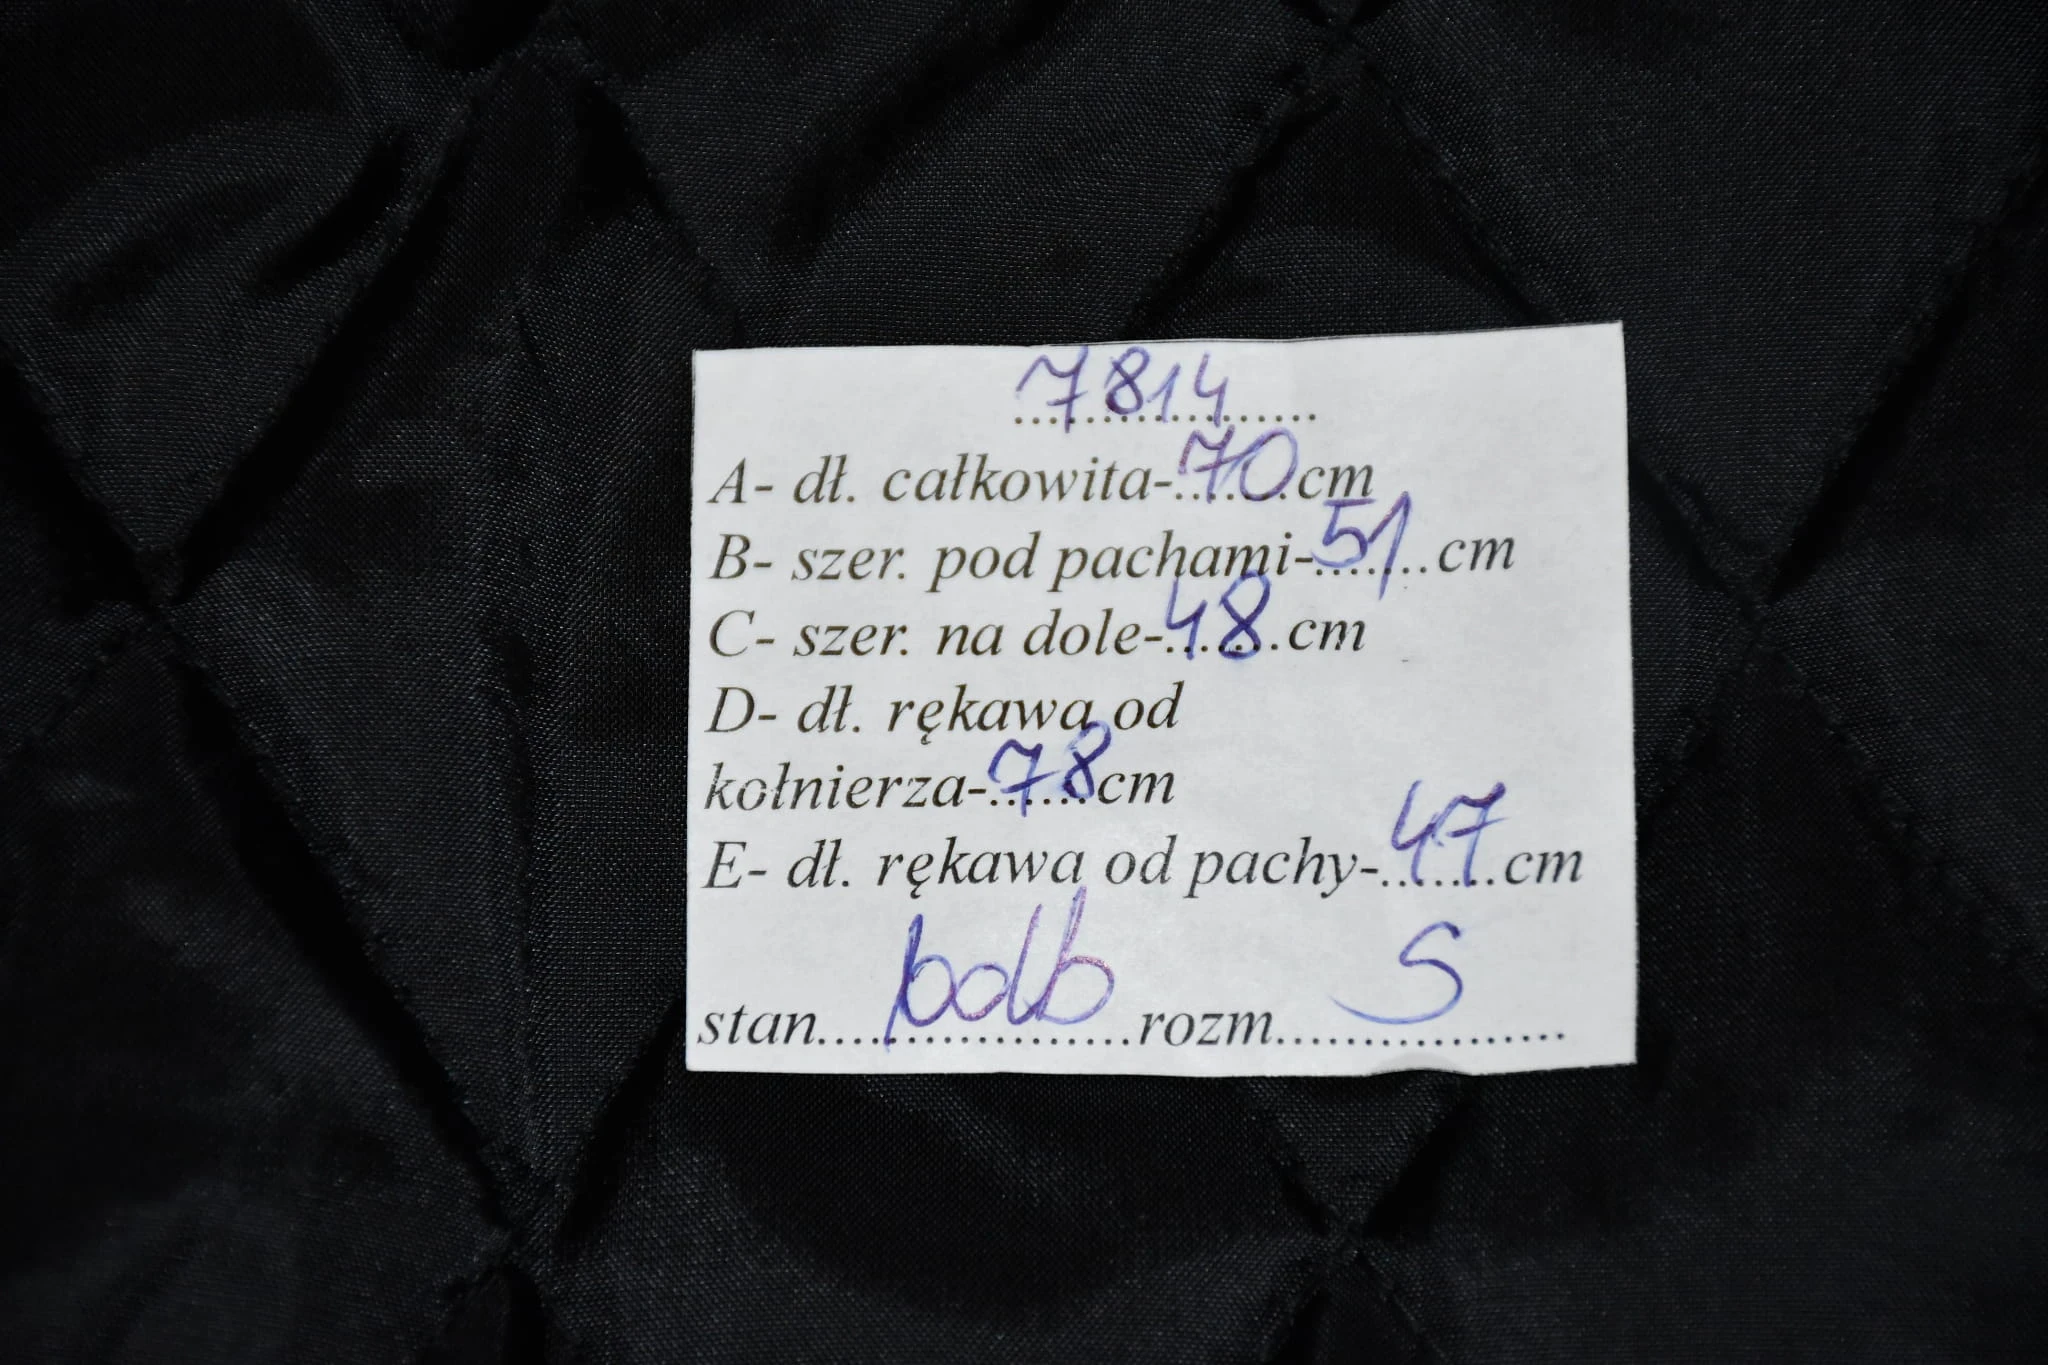 7814
A- dł. całkowita-70cm
B- szer. pod pachami-51...cm
C- szer. na dole-48.cm
D- dł. rękawa od
kołnierza-78cm
E- dł. rękawa od pachy-47.cm
stan....bdb....rozm....S....